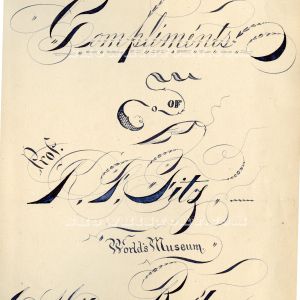 Compliments
OF
Prof.
R. F. Fitz
World's Museum